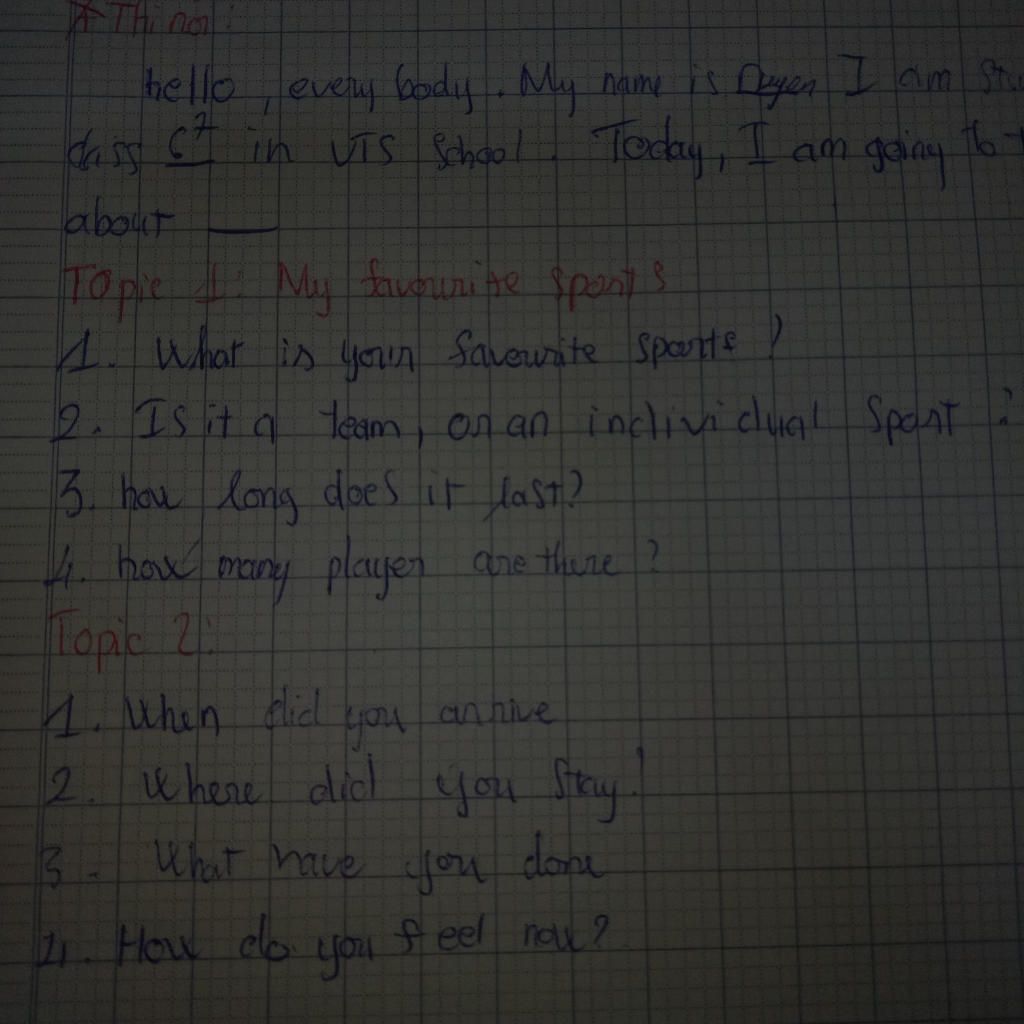 * Thi nói:
hello, every body. My name is Duyen I am
class 6^7 in VTS School. Today, I am going to
about ___
Topic 1: My favourite sports
1. What is your favourite sports?
2. Is it a team, or an individual sport?
3. how long does it last?
4. how many player are there?
Topic 2:
1. When did you arrive
2. Where did you stay?
3. What have you done
4. How do you feel now?